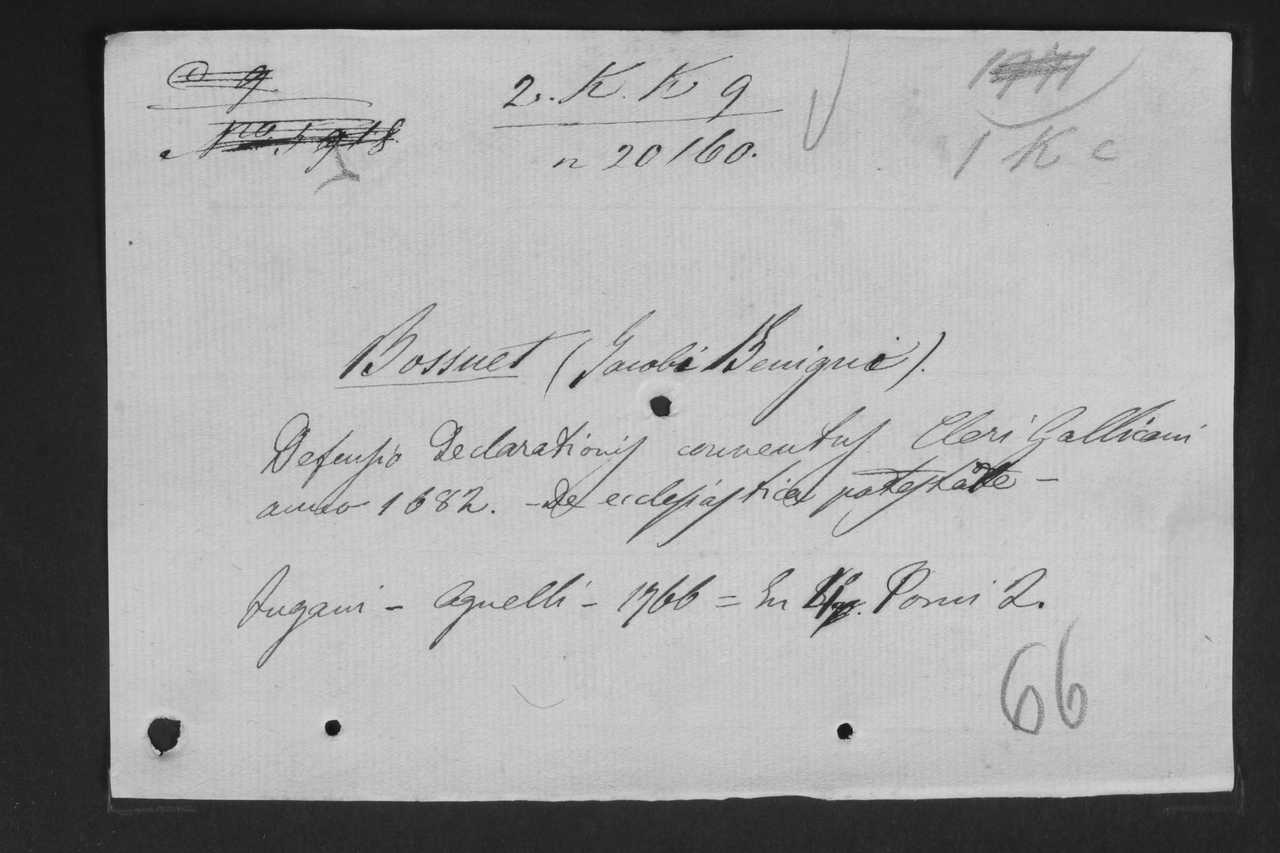 2. K. K 9
n 20160.
1 K c
Bossuet (Jacobi Benigni).
Defensio Declarationis conventus Cleri Gallicani
anno 1682. - De ecclesiastica potestate -
Lugani - Agnelli - 1766 = In 4º. Tomi 2.
66